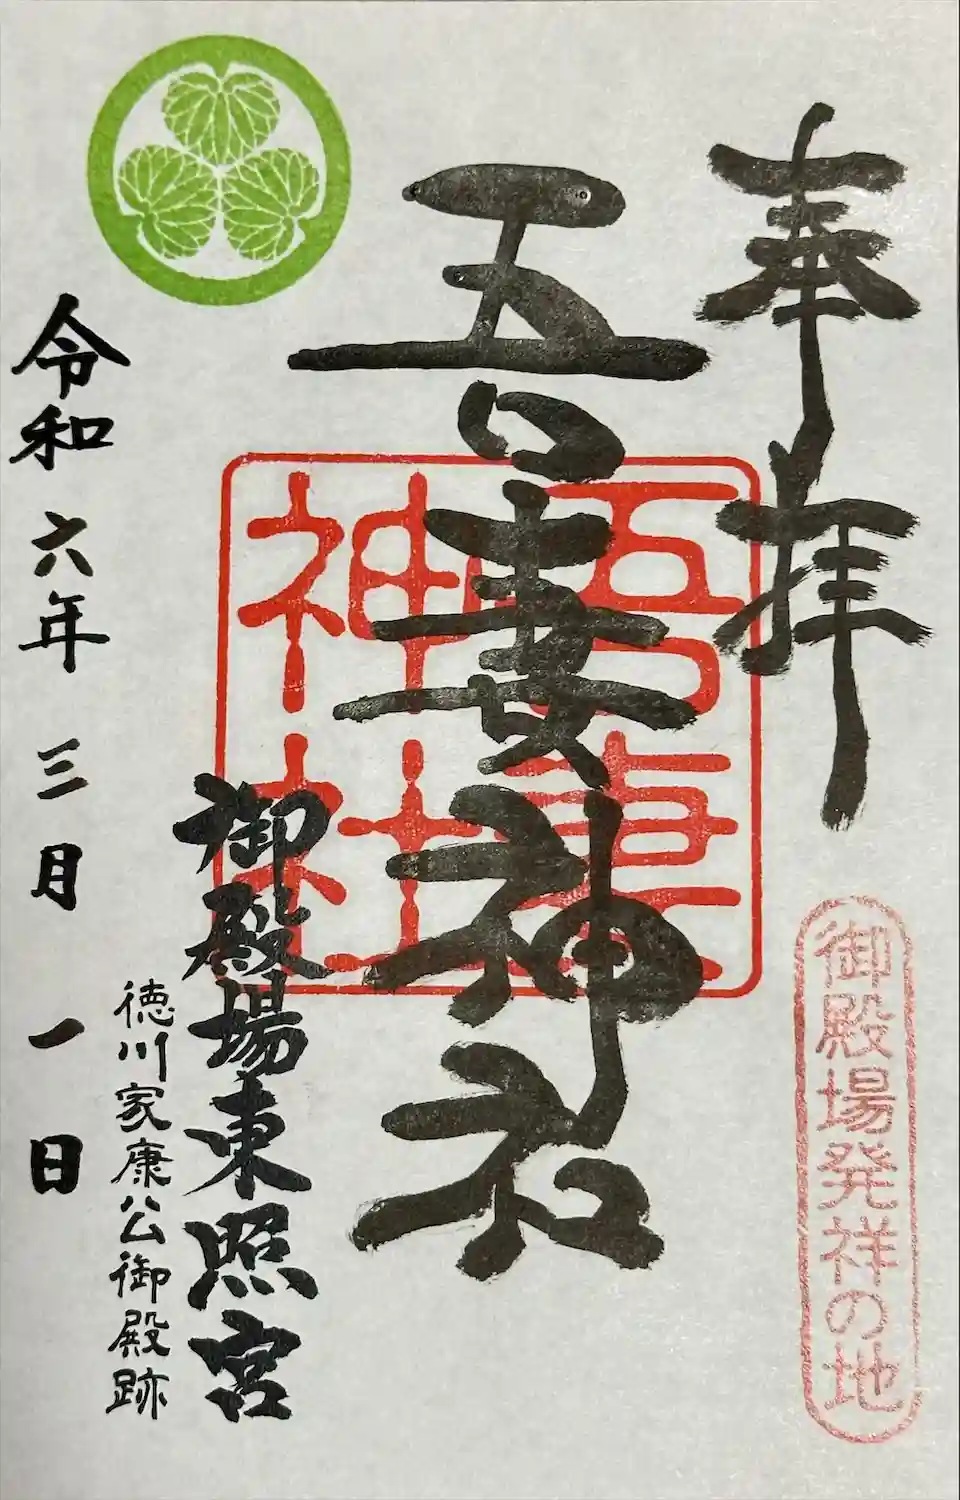 奉拝
御殿場発祥の地
吾妻神社
吾妻
神社
御殿場東照宮
徳川家康公御殿跡
令和六年三月一日